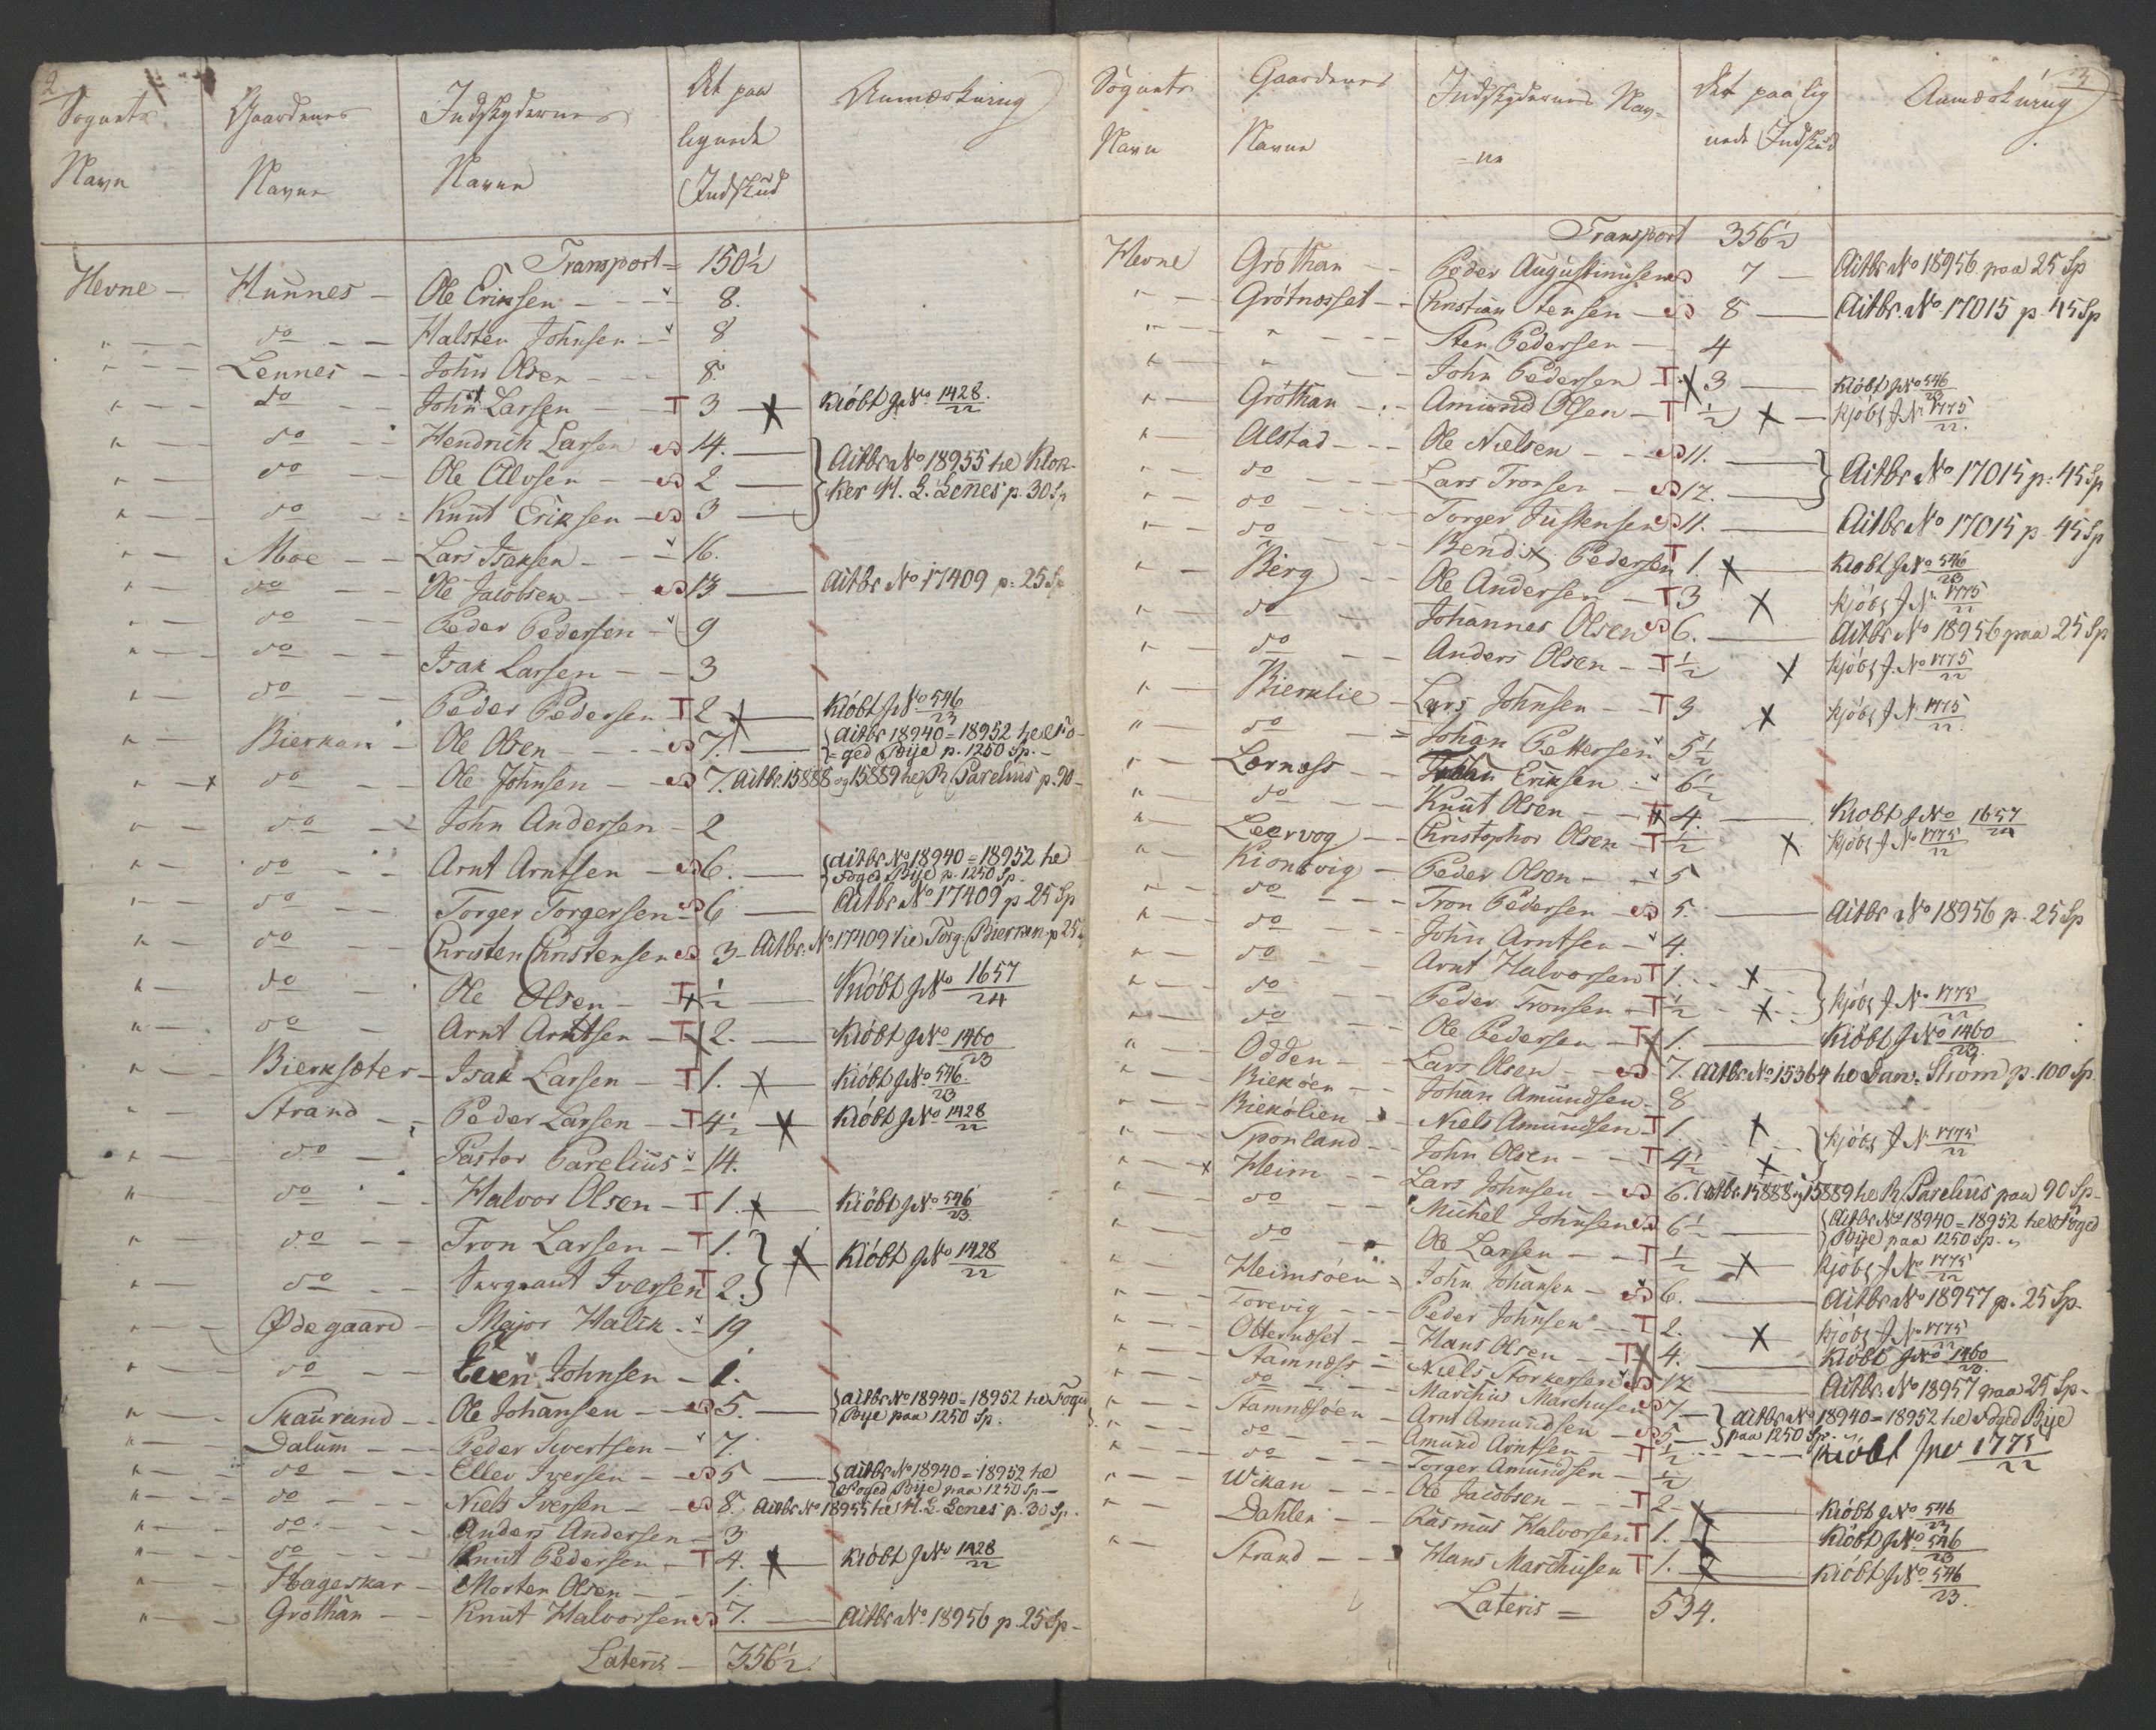 2
Sognets Navn | Gaardenes Navne | Indskydernes Navne | Det paa lignede Indskud | Anmærkning
Transport = 150½
Hevne - Hunnes - Ole Eriksen - 8.
" do - Halsten Johnsen - 8
" Lennes - John Olsen - 8.
" do - John Larsen - T 3 - Kiöbt J No 1428/22
" do - Hendrich Larsen 14. - } Actbr No 18955 he Klok-
" do - Ole Alvsen - 2 - ker H. L. Lenes p. 30 Sp
" do - Knut Eriksen - 3 -
" Moe - Lars Isaksen - 16.
" do - Ole Jacobsen - 13 - Actbr No 17409 p. 25 Sp
" do - Peder Pedersen - 9
" do - Isak Larsen - 3
" do - Peder Pedersen - T 2 - Kiöbt J No 546/23
" Bierkan - Ole Olsen - 7. - { Actbr 18940 = 18952 he Fo-
= ged Bije p. 1250 Sp. -
" x do - Ole Johnsen - 7. Actbr. 15888 og 15889 he R. Parelius p. 90 -
" do - John Andersen - 2
" do - Arnt Arntsen - 6. - { Actbr No 18940 = 18952 he
Foged Bije p. 1250 Sp -
" do - Torger Torgersen - 6 - Actbr No 17409 p 25 Sp
" do - Christen Christensen 3 - Actbr. No 17409 he Torg. Bierkan p 25
" do - Ole Olsen - T ½ - Kiöbt J No 1657/24
" do - Arnt Arntsen - T 2. - Kiöbt J No 1460/23
" Bierksæter - Isak Larsen - T 1. - Kiöbt J No 546/23
" Strand - Peder Larsen - T 4½ - Kiöbt J No 1428/22
" do - Pastor Parelius - 14.
" do - Halvor Olsen - T 1. - Kiöbt J No 546/23
" do - Tron Larsen - T 1. } Kiöbt J No 1428/22
" do - Sergeant Iversen T 2. }
" Ødegaard - Major Halck - 19
" do - Even Johnsen - 1.
" Skaurand - Ole Johansen - 5. - { Actbr No 18940 = 18952 he Foged
Bije paa 1250 Sp.
" Dalum - Peder Sivertsen - 7.
" do - Ellev Iversen - 5 - { Actbr No 18940 = 18952 he
Foged Bije paa 1250 Sp -
" do - Niels Iversen - 8. Actbr No 18955 he H. L. Lenes p. 30 Sp.
" do - Anders Andersen - 3
" do - Knut Pedersen - T 4. - Kiöbt J No 1428/22
" Hageskar - Morten Olsen - 1.
" Grothan - Knut Halvorsen 7. - Actbr No 18956 p. 25 Sp -
Lateris - 356½.
3
Sognets Navn | Gaardenes Navne | Indskydernes Nav= =ne | Det paalig nede Indskud | Anmærkning
Transport 356½
Hevne Gröthan - Peder Augustinusen 7 - Actbr No 18956 paa 25 Sp
" Grötnesset - Christian Stensen - 8 - Actbr. No 17015 p. 45 Sp
" " - Sten Pedersen - 4
" " - John Pedersen T 3 - Kiöbt J No 546/23
" Gröthan - Amund Olsen - T ½ x - Kjöbt J No 1775/22
" Alstad - Ole Nielsen - 11. - } Actbr No 17015 p. 45 Sp
" do - Lars Tronsen - 12. -
" do - Torger Justensen 11. - Actbr No 17015 p. 45 Sp
" do - Bendix Pedersen T 1. x - Kiobt J No 546/23
" Berg - Ole Andersen - T 3 x Kjöbt J No 1775/22
" do - Johannes Olsen 6. - Actbr No 18956 paa 25 Sp
" do - Anders Olsen - T ½ x Kjöbt J. No 1775/22
" Bierklie - Lars Johnsen - T 3 x Kjöbt J No 1775/22
" do = Johan Pettersen 5½
" Lærness - Johan Eriksen - 6½
" do - Knut Olsen - T 4. - Kiobt J No 1657/24
" Leervog - Christopher Olsen - T ½ x Kjöbt J No 1775/22
" Kiönsvig - Peder Olsen - 5
" do - Tron Pedersen - 5. - Actbr No 18956 p. 25 Sp
" do - John Arntsen - 4.
" do - Arnt Halvorsen T 1. x } Kjöbt J No 1775/22
" do - Peder Tronsen - T ½ x
" do - Ole Pedersen - T 1. - Kiöbt J No 1460/23
" Odden - Lars Olsen - 7. Actbr No 15364 he Dan. Ström p. 100 Sp
" Bieköen - Johan Amundsen - 8
" Biekölien - Niels Amundsen - T 1 x { Kjöbt J No 1775/22
" Sponland - John Olsen - T 4½ x
" x Heim - Lars Johnsen - 6. Actbr. 15888 og 15889 he R. Parelius paa 90 Sp -
" do - Michel Johnsen 6½ - { Actbr No 18940 = 18952 he Foged
Bije paa 1250 Sp. -
" do - Ole Larsen - T ½ x Kjöbt J No 1775/22
" Heimsöen - John Johansen - 6. - Actbr No 18957 p. 25 Sp.
" Torevig - Peder Johnsen - T 2. x Kjöbt J No 1775/22
" Otternesset - Hans Olsen - T 4. - Kiöbt J No 1460/23
" Stamness - Niels Storkersen 12 - Actbr. No 18957 paa 25 Sp -
" do - Marchus Marchusen 7 - } Actbr No 18940 = 18952 he Foged Bije
" Stamnesöen - Arnt Amundsen - 5 - } paa 1250 Sp. -
" do - Amund Arntsen - T ½ - Kiöbt J No 1775/22
" do - Torger Amundsen - ½
" Wikan - Ole Jacobsen - T 2 - Kiöbt J No 546/23
" Dahlen - Rasmus Halvorsen T 1. - Kiöbt J No 546/23
" Strand - Hans Marchusen T 1. - Kiöbt J No 546/23
Lateris = 534.